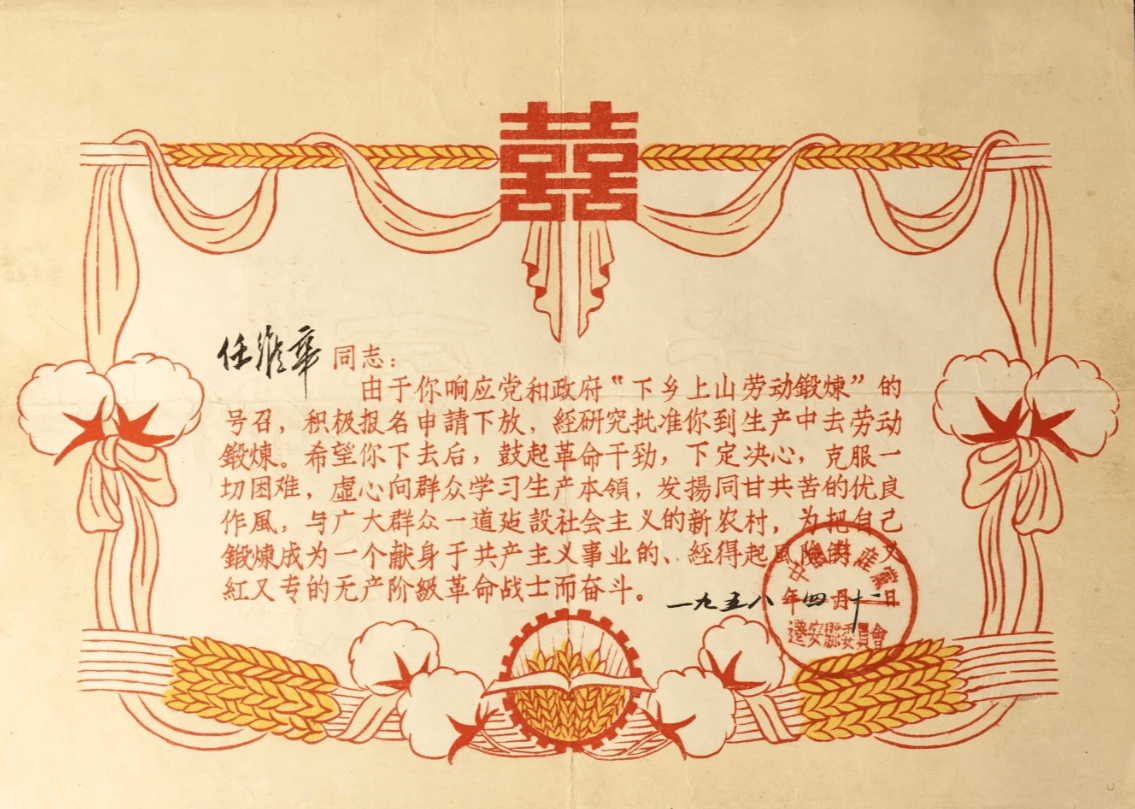 囍
任维华 同志：
由于你响应党和政府“下乡上山劳动鍛煉”的
号召，积极报名申請下放，經研究批准你到生产中去劳动
鍛煉。希望你下去后，鼓起革命干劲，下定决心，克服一
切困难，虛心向群众学习生产本領，发揚同甘共苦的优良
作風，与广大群众一道建設社会主义的新农村，为把自己
鍛煉成为一个献身于共产主义事业的、經得起風險的、又
紅又专的无产阶級革命战士而奋斗。
一九五八年四月十二日
中國共産黨
遷安縣委員會